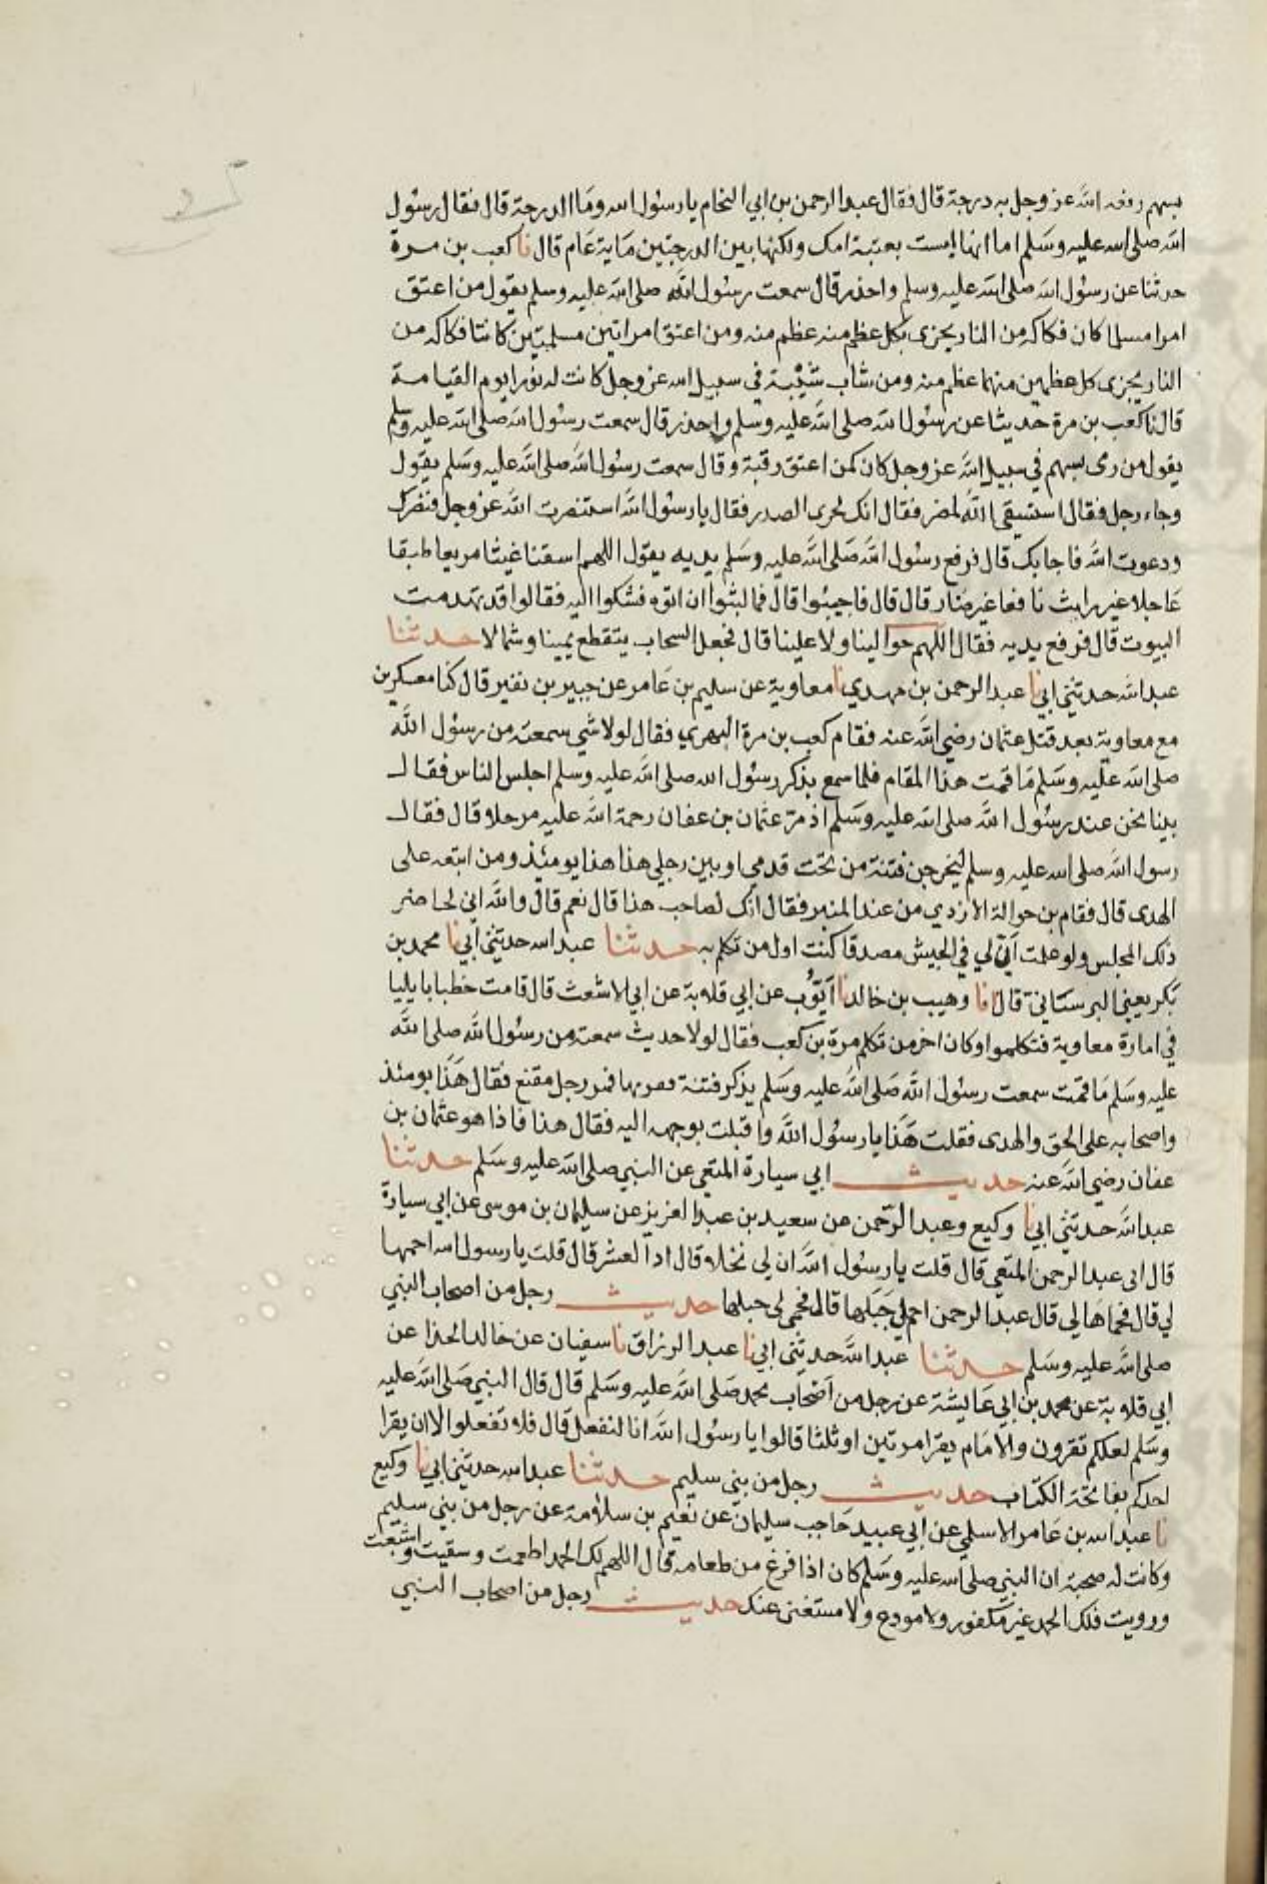 بسهم رفعه الله عز وجل به درجة قال فقال عبد الرحمن بن ابي النحام يا رسول الله وما الدرجة قال فقال رسول
الله صلى الله عليه وسلم اما انها ليست بعتبة امك ولكنها بين الدرجتين ماية عام قال نا كعب بن مرة
حدثنا عن رسول الله صلى الله عليه وسلم واحذر قال سمعت رسول الله صلى الله عليه وسلم يقول من اعتق
امرا مسلما كان فكاكه من النار يجزى بكل عظم منه عظم منه ومن اعتق امراتين مسلمتين كانتا فكاكه من
النار يجزى كل عظمين منهما عظم منه ومن شاب شيبة في سبيل الله عز وجل كانت له نورا يوم القيامة
قال نا كعب بن مرة حديثا عن رسول الله صلى الله عليه وسلم واحذر قال سمعت رسول الله صلى الله عليه وسلم
يقول من رمى بسهم في سبيل الله عز وجل كان كمن اعتق رقبة وقال سمعت رسول الله صلى الله عليه وسلم يقول
وجاء رجل فقال استسقي الله لمضر فقال انك لجرى المضر فقال يا رسول الله استنصرت الله عز وجل فنصرك
ودعوت الله فاجابك قال فرفع رسول الله صلى الله عليه وسلم يديه يقول اللهم اسقنا غيثا مريعا طبقا
عاجلا غير رايث نافعا غير ضار قال قال فاجيبوا قال فما لبثوا ان اتوه فشكوا اليه فقالوا قد تهدمت
البيوت قال فرفع يديه فقال اللهم حوالينا ولا علينا قال فجعل السحاب يتقطع يمينا وشمالا حدثنا
عبد الله حدثني ابي نا عبد الرحمن بن مهدي نا معاوية عن سليم بن عامر عن جبير بن نفير قال كنا معسكرين
مع معاوية بعد قتل عثمان رضي الله عنه فقام كعب بن مرة البهزي فقال لولا شي سمعته من رسول الله
صلى الله عليه وسلم ما قمت هذا المقام فلما سمع بذكر رسول الله صلى الله عليه وسلم اجلس الناس فقال
بينا نحن عند رسول الله صلى الله عليه وسلم اذ مر عثمان بن عفان رحمة الله عليه مرجلا قال فقال
رسول الله صلى الله عليه وسلم لتخرجن فتنة من تحت قدمي او بين رجلي هذا هذا يومئذ ومن اتبعه على
الهدى قال فقام بن حوالة الازدي من عند المنبر فقال انك لصاحب هذا قال نعم قال والله اني لحاضر
ذلك المجلس ولو علمت ان لي في الجيش مصدقا كنت اول من تكلم به حدثنا عبد الله حدثني ابي نا محمد بن
بكر يعني البرستاني قال انا وهيب بن خالد نا ايوب عن ابي قلابة عن ابي الاشعث قال قامت خطبا بايليا
في امارة معاوية فتكلموا وكان اخر من تكلم مرة بن كعب فقال لولا حديث سمعته من رسول الله صلى الله
عليه وسلم ما قمت سمعت رسول الله صلى الله عليه وسلم يذكر فتنة فقربها فمر رجل مقنع فقال هذا يومئذ
واصحابه على الحق والهدى فقلت هذا يا رسول الله واقبلت بوجهه اليه فقال هذا فاذا هو عثمان بن
عفان رضي الله عنه حديث ابي سيارة المتعي عن النبي صلى الله عليه وسلم حدثنا
عبد الله حدثني ابي نا وكيع وعبد الرحمن عن سعيد بن عبد العزيز عن سليمان بن موسى عن ابي سيارة
قال ابي عبد الرحمن المتعي قال قلت يا رسول الله ان لي نخلا قال اد العشر قال قلت يا رسول الله احمها
لي قال فحماها لي قال عبد الرحمن احم لي جبلها قال فحمى لي جبلها حديث رجل من اصحاب النبي
صلى الله عليه وسلم حدثنا عبد الله حدثني ابي نا عبد الرزاق نا سفيان عن خالد الحذا عن
ابي قلابة عن محمد بن ابي عايشة عن رجل من اصحاب محمد صلى الله عليه وسلم قال قال النبي صلى الله عليه
وسلم لعلكم تقرون والامام يقرا مرتين او ثلثا قالوا يا رسول الله انا لنفعل قال فلا تفعلوا الا ان يقرا
احدكم بفاتحة الكتاب حديث رجل من بني سليم حدثنا عبد الله حدثني ابي نا وكيع
نا عبد الله بن عامر الاسلمي عن ابي عبيد حاجب سليمان عن نعيم بن سلامة عن رجل من بني سليم
وكانت له صحبة ان النبي صلى الله عليه وسلم كان اذا فرغ من طعامه قال اللهم لك الحمد اطعمت وسقيت واشبعت
ورويت فلك الحمد غير مكفور ولا مودع ولا مستغنى عنك حديث رجل من اصحاب النبي